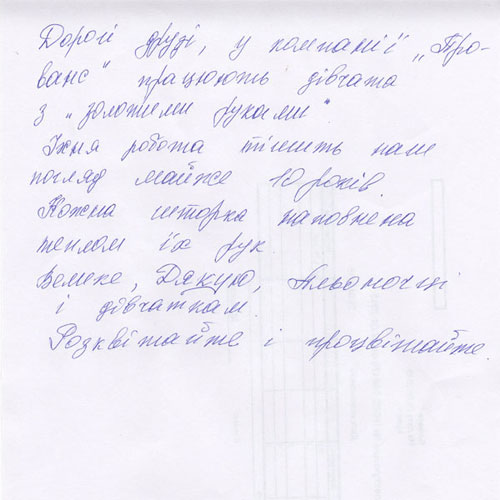 Дорогі друзі, у компанії „Про-
ванс" працюють дівчата
з „золотими руками".
Їхня робота тішить наш
погляд майже 10 років.
Кожна шторка наповнена
теплом їх рук
Велике, Дякую, Альоночці
і дівчаткам.
Розквітайте і процвітайте.